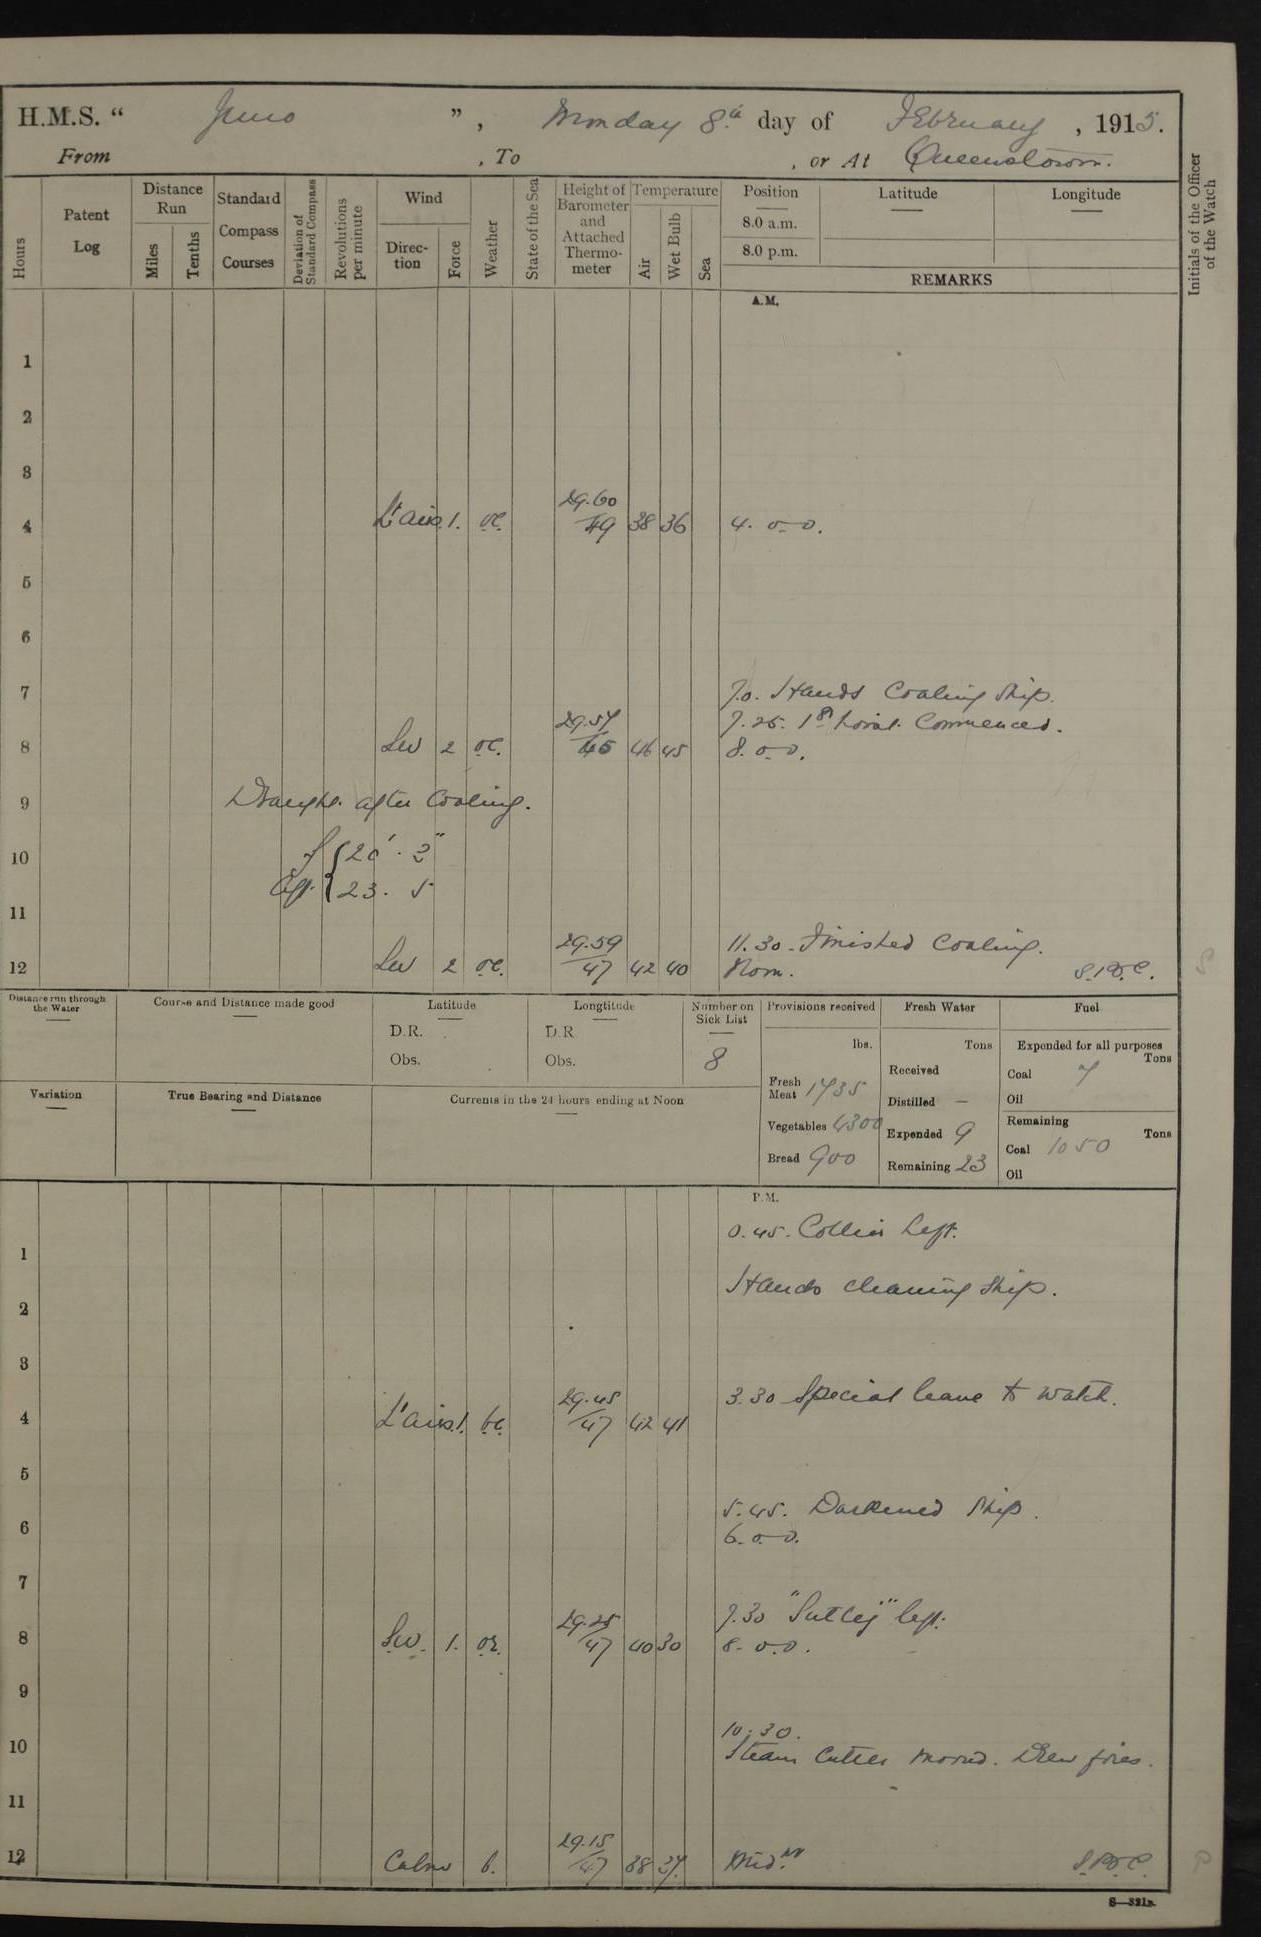 H.M.S. “ Juno ” , Monday 8th day of February , 1915.
From , To , or At Queenstown.
Hours
Patent Log
Distance Run
Miles
Tenths
Standard Compass Courses
Deviation of Standard Compass
Revolutions per minute
Wind
Direction
Force
Weather
State of the Sea
Height of Barometer and Attached Thermometer
Temperature
Air
Wet Bulb
Sea
Position
8.0 a.m.
8.0 p.m.
Latitude
Longitude
REMARKS
Initials of the Officer of the Watch
A.M.
1
2
3
4 Lt airs. 1. oc. 29.60/49 38 36 4. 0-0.
5
6
7 7.0. Hands Coaling Ship.
7.25. 1st hoist Commenced.
8 SW 2 oc. 29.57/45 46 45 8. 0-0.
9 Draught after Coaling.
10 f { 20' . 3"
Aft. { 23. 5
11
11.30 - Finished Coaling.
12 SW 2 oc. 29.59/47 42 40 Noon.
Distance run through the Water
Course and Distance made good
Latitude
D.R.
Obs.
Longtitude
D.R
Obs.
Number on Sick List
8
Provisions received
lbs.
Fresh Meat 1735
Vegetables 4300
Bread 900
Fresh Water
Tons
Received
Distilled —
Expended 9
Remaining 23
Fuel
Expended for all purposes
Tons
Coal 7
Oil
Remaining
Tons
Coal 1050
Oil
Variation
True Bearing and Distance
Currents in the 24 hours ending at Noon
P.M.
0.45. Collier left.
1
Hands cleaning Ship.
2
3
3.30 Special leave to watch.
4 Lt airs 1. bc. 29.45/47 42 41
5
5.45. Darkened Ship.
6 6. 0-0.
7
7.30 "Sutlej" left.
8 SW. 1. or. 29.25/47 40 30 8. 0.0.
9
10.30.
10 Steam Cutter moored. Drew fires.
11
12 Calm b. 29.15/47 38 37. Midnt.